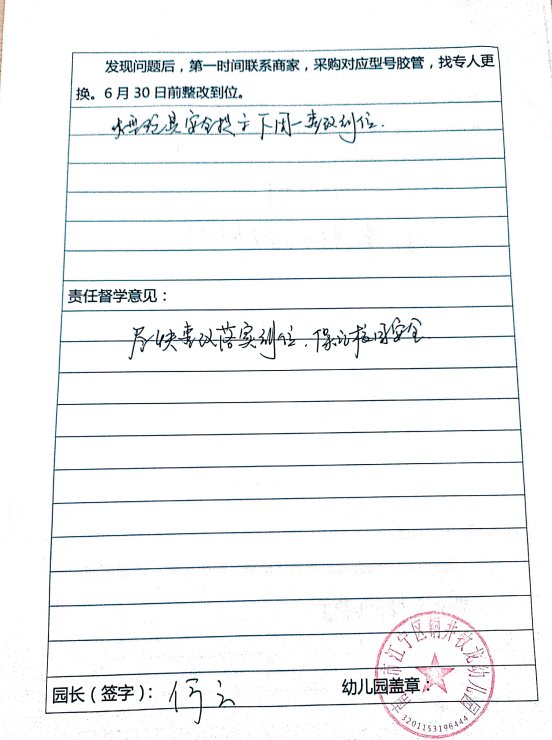 发现问题后，第一时间联系商家，采购对应型号胶管，找专人更
换。6月30日前整改到位。
大型玩具安全提示下周一整改到位.
责任督学意见：
尽快整改落实到位，保证校园安全
园长（签字）：何
幼儿园盖章：
市江宁区铜井牧龙幼儿园
3201153196444